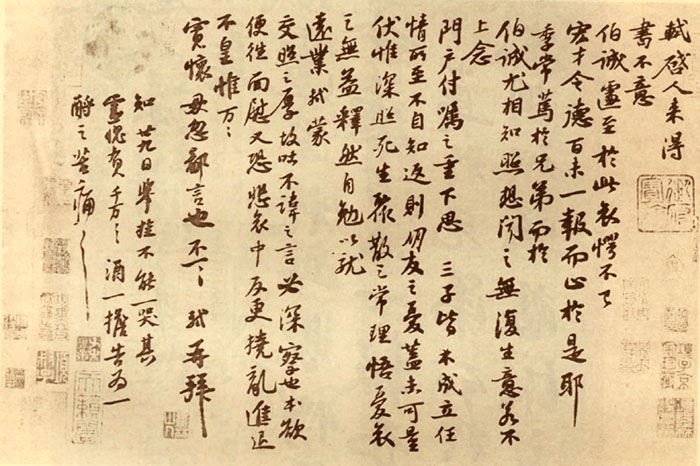 軾啓人来得
書不意
伯誠遽至於此哀愕不已
宏才令德百未一報而止於是耶
季常篤於兄弟而於
伯誠尤相知照想聞之無復生意若不
上念
門户付囑之重下思三子皆不成立任
情所至不自知返則朋友之憂盖未可量
伏惟深照死生聚散之常理悟憂哀
之無益釋然自勉以就
遠業軾蒙
交照之厚故吐不諱之言必深察也本欲
便往面慰又恐悲哀中反更撓亂進退
不皇惟万々
寛懷毋忽鄙言也不一々軾再拜
知廿九日舉挂不能一哭其
靈愧負千万々酒一擔告為一
酹之苦痛々